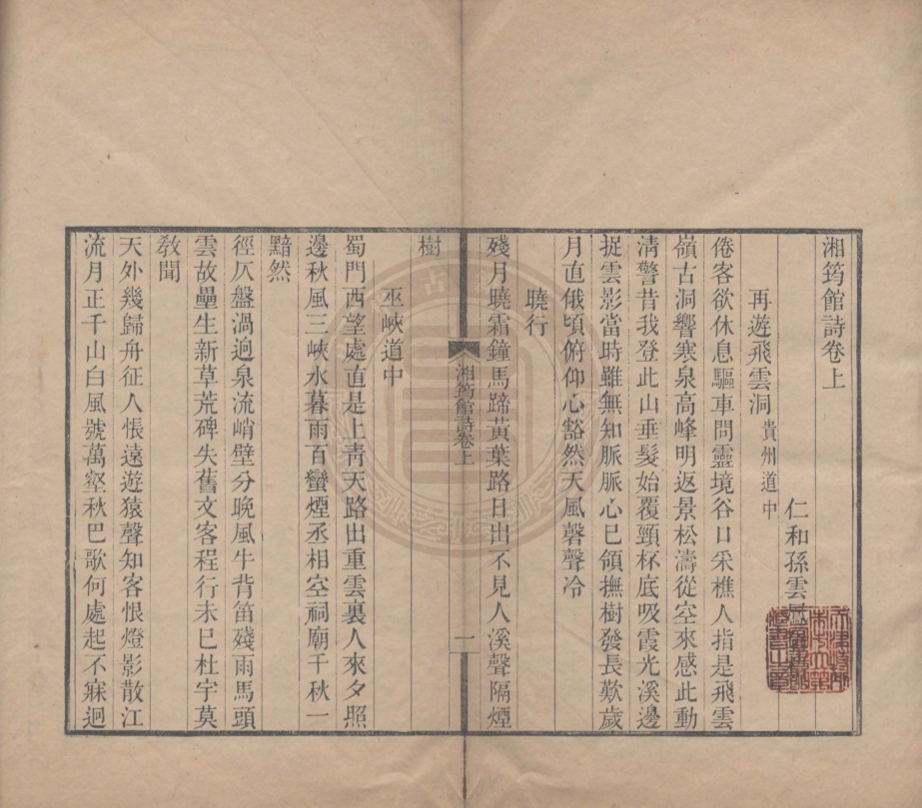 湘筠館詩卷上
仁和孫雲
再遊飛雲洞 貴州道中
倦客欲休息驅車問靈境谷口采樵人指是飛雲
嶺古洞響寒泉高峰明返景松濤從空來感此動
清警昔我登此山垂髮始覆頸杯底吸霞光溪邊
捉雲影當時雖無知脈脈心已領撫樹發長歎歲
月直俄頃俯仰心豁然天風磬聲冷
曉行
殘月曉霜鐘馬蹄黃葉路日出不見人溪聲隔煙
湘筠館詩卷上
一
樹
巫峽道中
蜀門西望處直是上青天路出重雲裏人來夕照
邊秋風三峽水暮雨百蠻煙丞相空祠廟千秋一
黯然
徑仄盤渦迥泉流峭壁分晚風牛背笛殘雨馬頭
雲故壘生新草荒碑失舊文客程行未已杜宇莫
教聞
天外幾歸舟征人悵遠遊猿聲知客恨燈影散江
流月正千山白風號萬壑秋巴歌何處起不寐迴